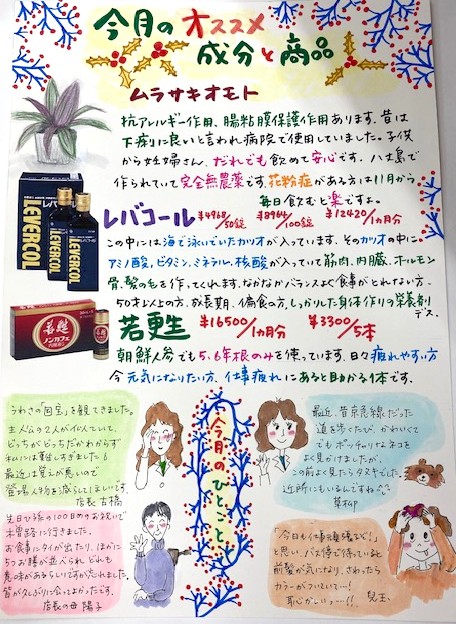 今月のオススメ
成分と商品
ムラサキオモト
抗アレルギー作用、腸粘膜保護作用あります。昔は
下痢りに良いと言われ病院で使用していました。子供
から妊婦さん、だれでも飲めて安心です。八丈島で
作られていて完全無農薬です。花粉症がある方は11月から
毎日飲むと楽ですよ。
レバコール ¥4968/50錠 ¥8964/100錠 ¥12420/1ヵ月分
この中には海で泳いでいたカツオが入っています。そのカツオの中に。
アミノ酸、ビタミン、ミネラル、核酸が入っていて筋肉、内臓、ホルモン
骨、髪の毛を作ってくれます。なかなかバランスよく食事がとれない方、
50才以上の方、成長期、偏食の方、しっかりした身体作りの栄養剤
デス。
若甦 ¥16500/1ヵ月分 ¥3300/5本
朝鮮人参でも5、6年根のみを使っています。日々疲れやすい方
今元気になりたい方、仕事疲れにあると助かる1本です。
LEVERCOL
LEVERCOL
若甦
ノンカフェ
今月のひとこと
うわさの「国宝」を観てきました。
主人公の2人が似ていて、
どっちがどっちだかわからず
私には難しすぎました!
最近は覚えが悪いので
登場人物を減らしてほしいです。
店長 古橋
先日ひ孫の100日めのお祝いで
木曽路に行きました。
お食事にタイが出たり、ほかに
5つお膳が並べられどれも
意味があるらしいですが忘れました。
皆が久しぶりに会ってよかったです。
店長の母 陽子
最近、昔京急線だった
道を歩くたび、かわいくて
でもポッチャリなネコを
よく見かけましたが、
この前よく見たらタヌキでした。
近所にもいるんですね^^
草柳
「今日も仕事頑張るぞ!」と
思い、バス停で待っている時
前髪が気になり、さわったら
カラーがついていて…!
恥ずかしいっー!!
児玉